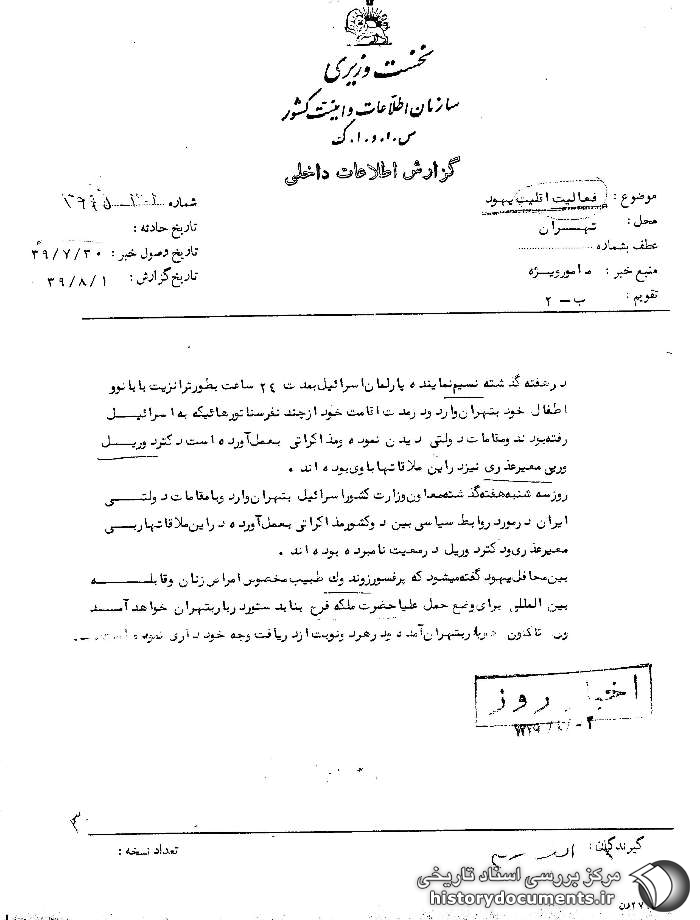 نخست وزیری
سازمان اطلاعات و امنیت کشور
س.ا.و.ا.ک
گزارش اطلاعات داخلی
موضوع : فعالیت اقلیت یهود
محل : تهران
عطف بشماره
منبع خبر : مامورویژه
تقویم : ب – ۲
شماره
تاریخ حادثه :
تاریخ وصول خبر : ۳۹/۷/۳۰
تاریخ گزارش : ۳۹/۸/۱
در هفته گذشته نسیم نماینده پارلمان اسرائیل بمدت ۲۴ ساعت بطور ترانزیت با بانو و
اطفال خود بتهران وارد و در مدت اقامت خود از چند نفر سناتورهائیکه به اسرائیل
رفته بودند و مقامات دولتی دیدن نموده و مذاکراتی بعمل آورده است دکتر دوریل
و ربی معیرعذری نیز در این ملاقاتها با وی بوده اند .
روز سه شنبه هفته گذشته معاون وزارت کشور اسرائیل بتهران وارد و با مقامات دولتی
ایران در مورد روابط سیاسی بین دو کشور مذاکراتی بعمل آورده در این ملاقاتها ربی
معیرعذری و دکتر دوریل در معیت نامبرده بوده اند .
بین محافل یهود گفته میشود که پرفسور زوندوک طبیب مخصوص امراض زنان و قابله
بین المللی برای وضع حمل علیا حضرت ملکه فرح بنا بدستور دربار بتهران خواهد آمد
وی تاکنون دوبار بتهران آمده و در هر دو نوبت از دریافت وجه خودداری نموده است .
اخبار روز
۳
گیرندگان :
تعداد نسخه :
مرکز بررسی اسناد تاریخی
historydocuments.ir